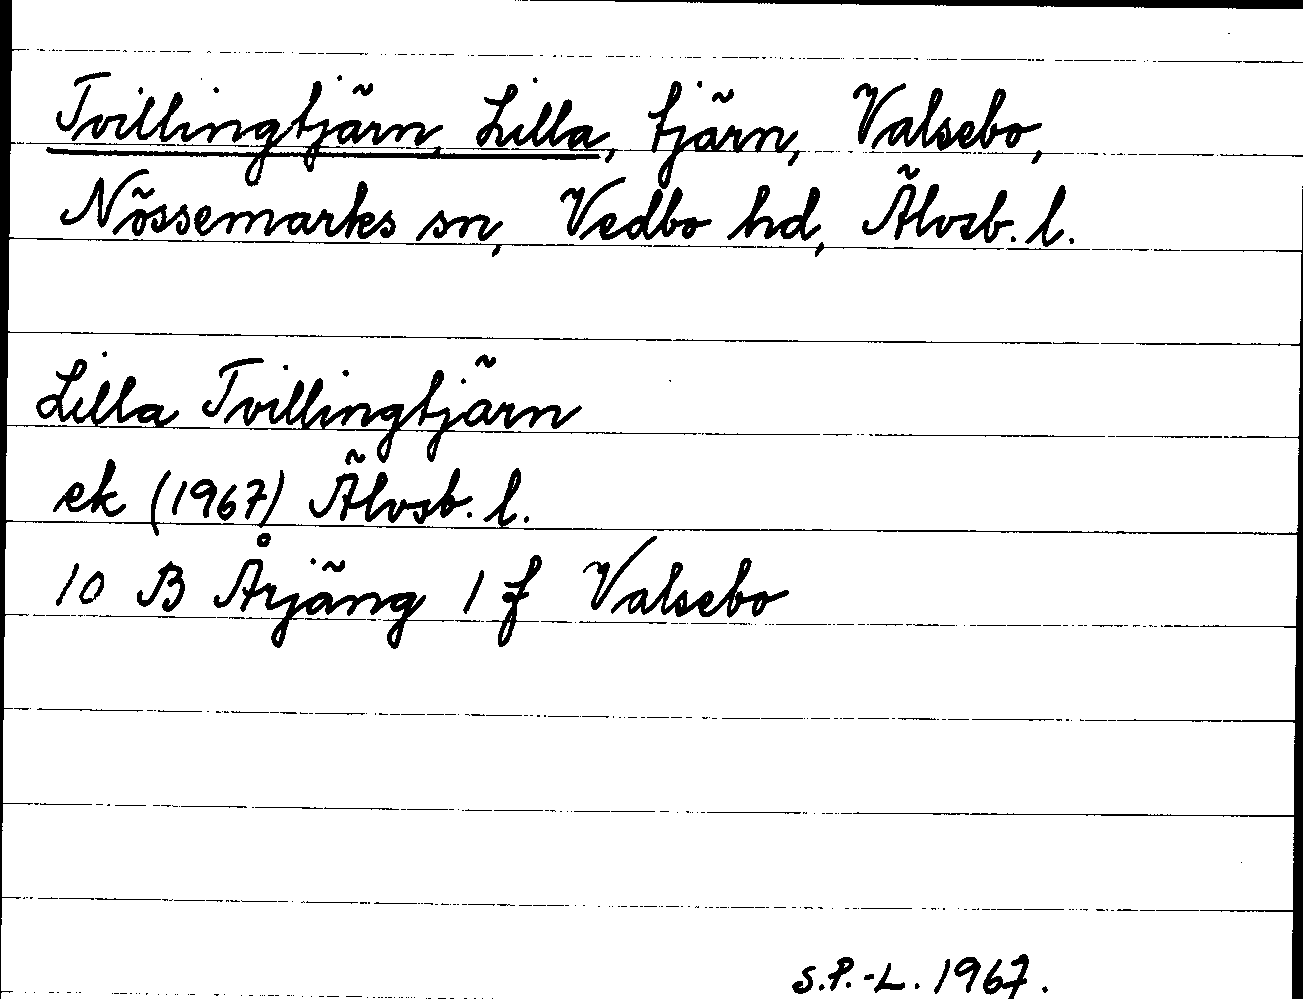 Tvillingtjärn, Lilla, tjärn, Valsebo,
Nössemarks sn, Vedbo hd, Älvsb. l.
Lilla Tvillingtjärn
ek (1967) Älvsb. l.
10 B Årjäng 1 f Valsebo
S.P.-L. 1967.